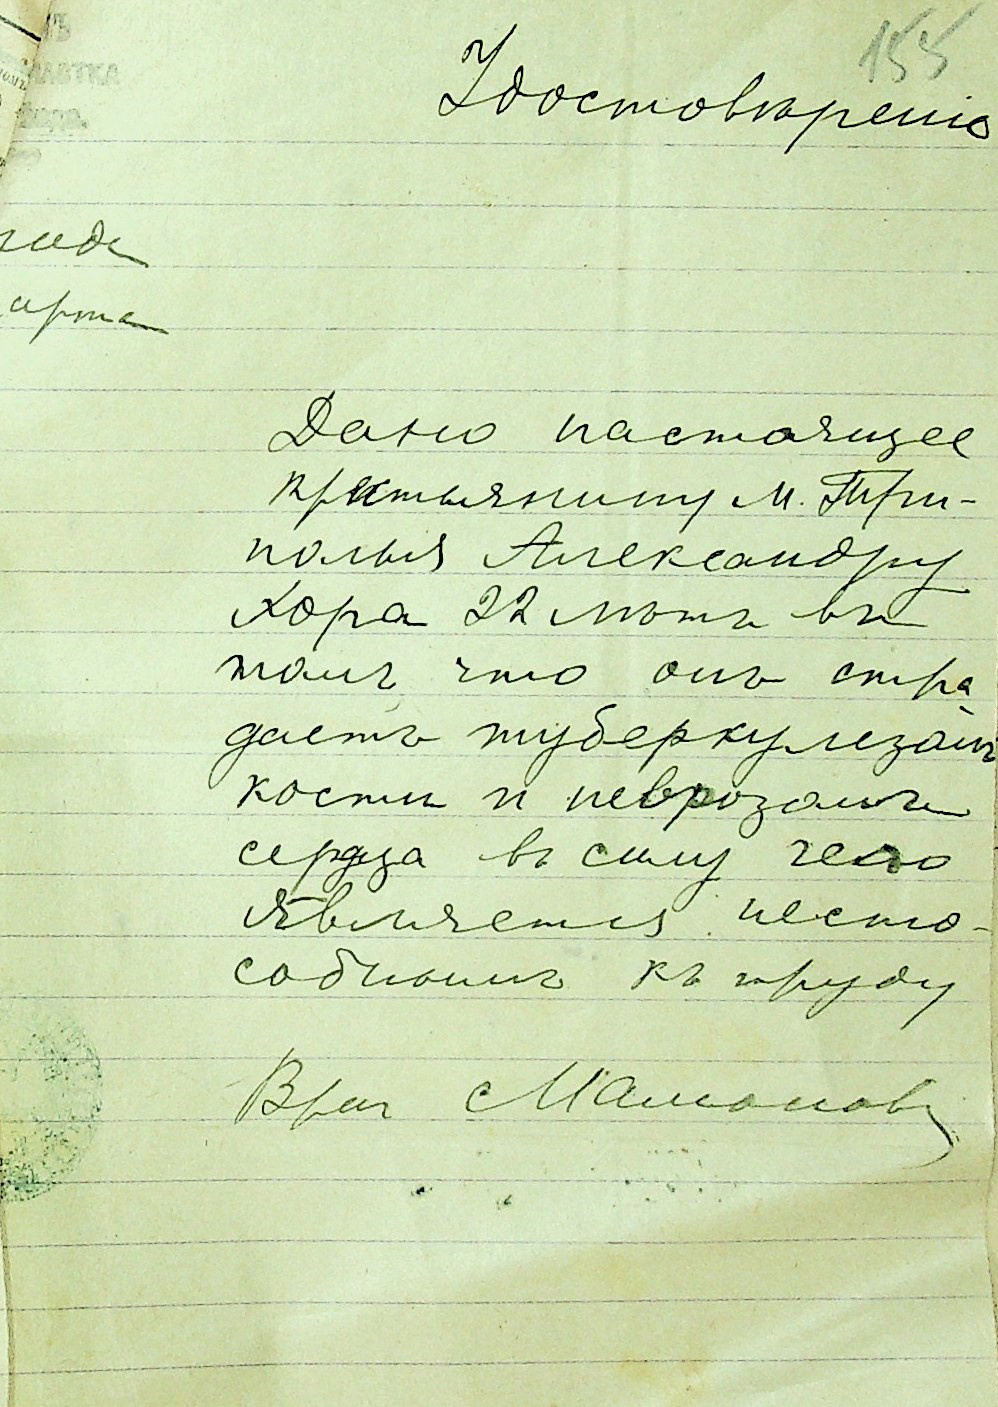 155
Удостовѣреніе
года
арта
Дано настоящее
крестьянину м. Три-
полья Александру
Хора 22 лѣтъ въ
томъ что онъ стра
даетъ туберкулезомъ
кости и неврозомъ
сердца въ силу чего
является неспо-
собнымъ къ труду
Врач